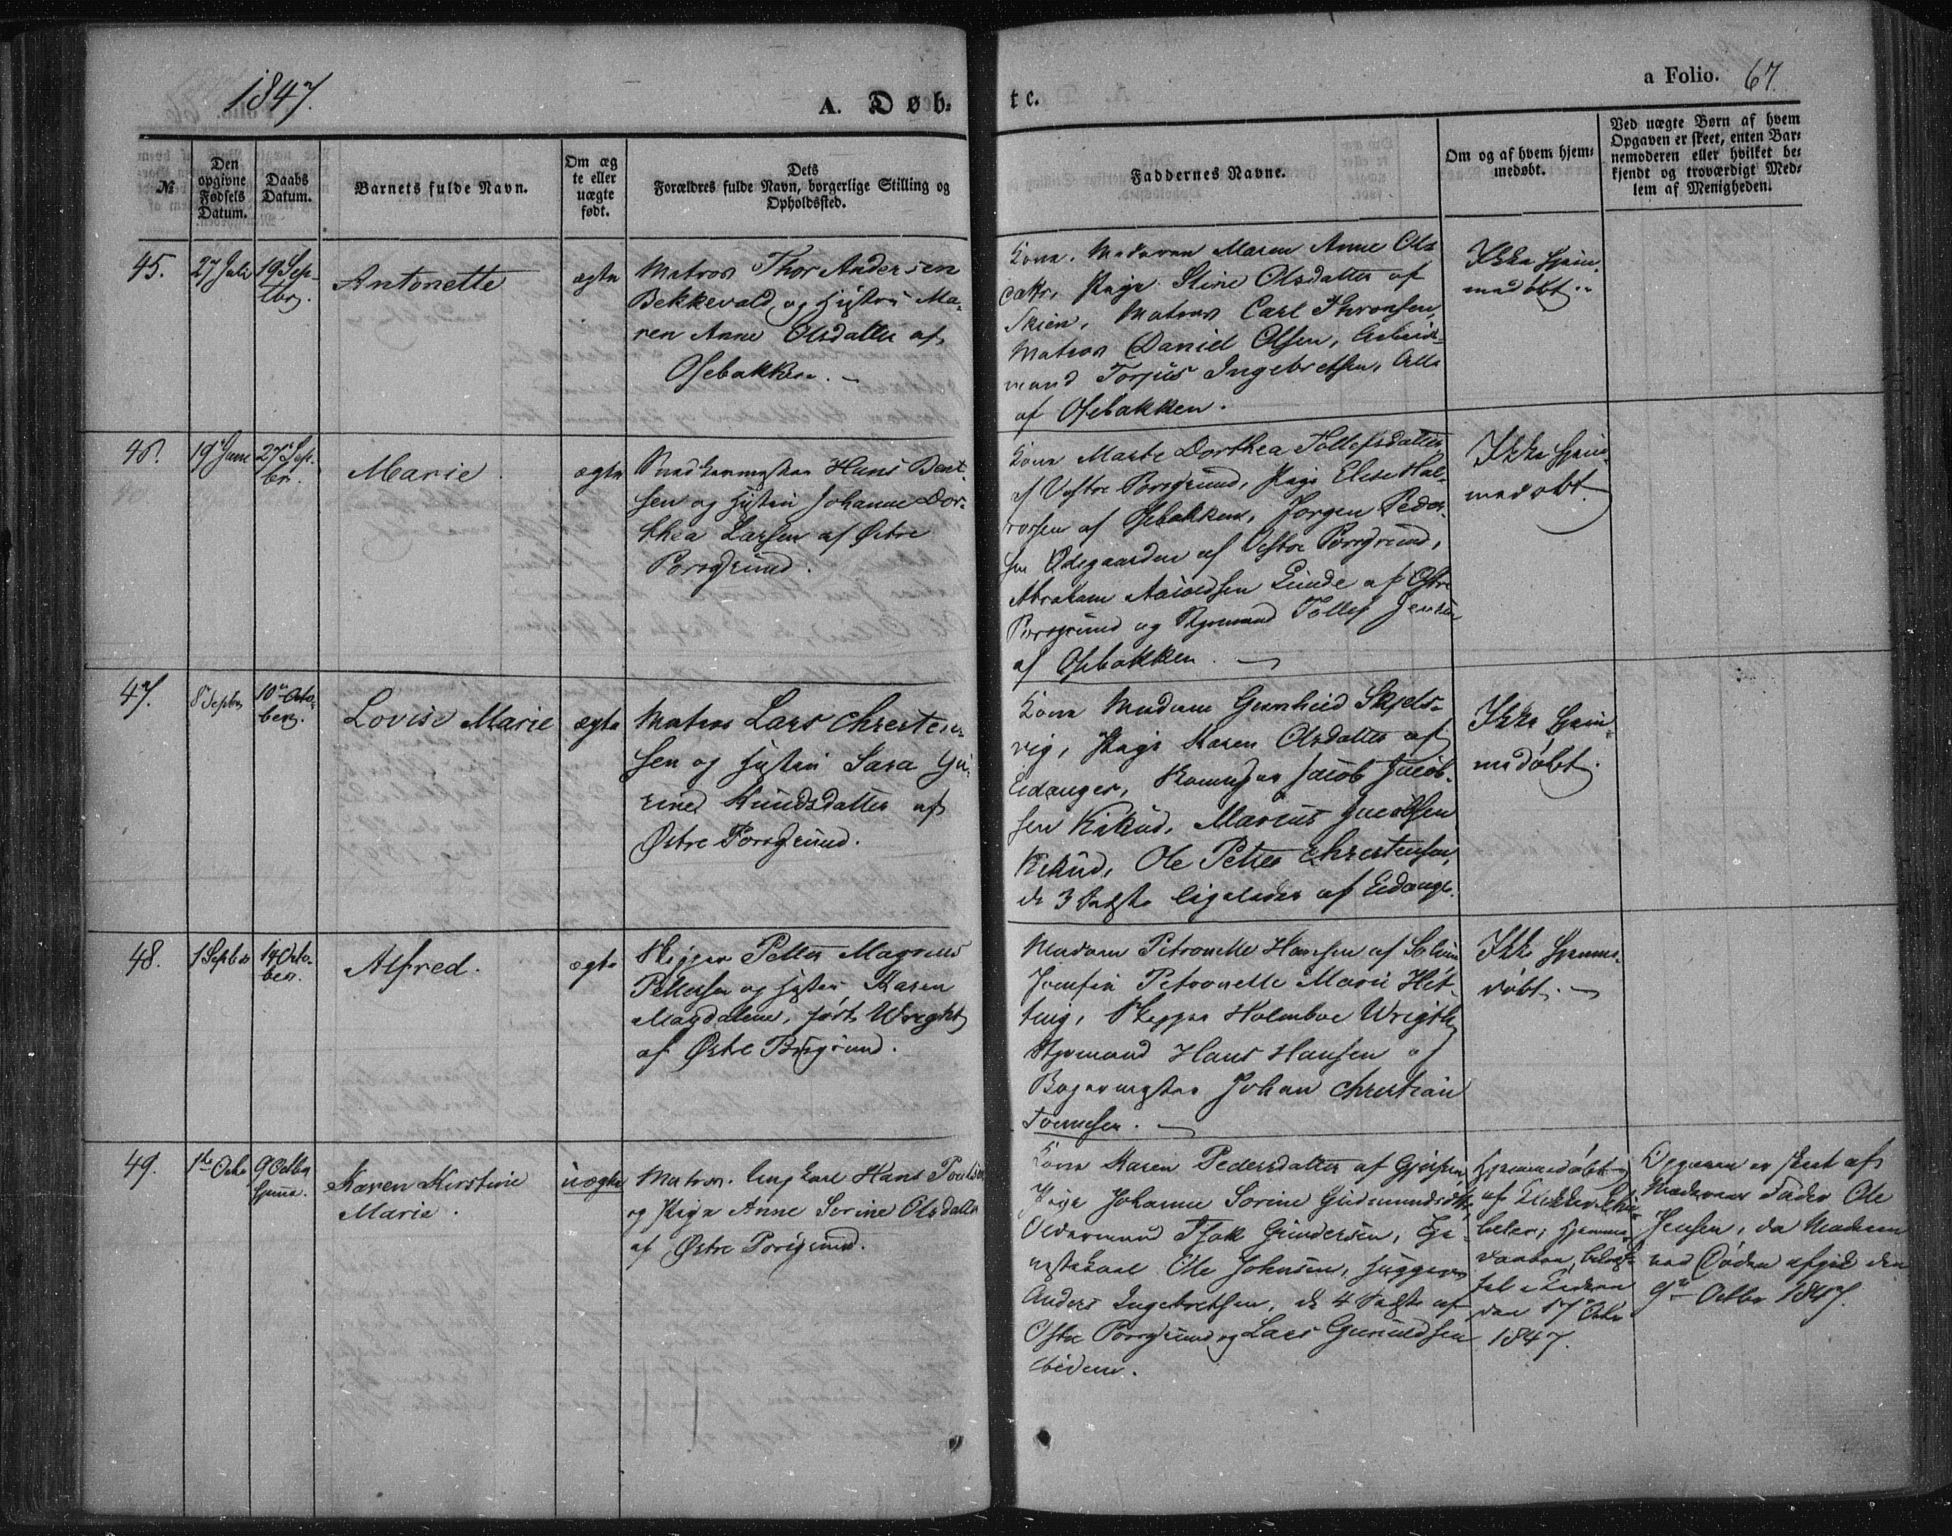 1847.
A. Døb-
te.
a Folio. 67.
№
Den opgivne Fødsels Datum.
Daabs Datum.
Barnets fulde Navn.
Om ægte eller uægte født.
Dets
Forældres fulde Navn, borgerlige Stilling og
Opholdssted.
Faddernes Navne.
Om og af hvem hjem-
medøbt.
Ved uægte Børn af hvem
Opgaven er skeet, enten Bar-
nemoderen eller hvilket be-
kjendt og troværdigt Med-
lem af Menigheden.
45.
27 Juli
19 Sep-
tbr.
Antonette
ægte
Matros Thor Andersen
Bekkevald og Hustru Ma-
ren Anne Olsdatter af
Osebakken.
Kone, Maren Anne Ols
Pige Stine Olsdatter af
Skien, Matros Carl
Matros Daniel Olsen, Arbeids-
mand Torjus Ingebretsen, Alle
af Osebakken.
Ikke hjem-
medøbt.
46.
19 Juni
27 Sep-
br.
Marie
ægte
Hans Bent-
sen og Hustru Johanne Dor-
thea Larsen af Østre
Porsgrund.
Kone Marte Dorthea Tollefsdatter
af Vestre Porsgrund, Pige Elise Hal-
vorsen af Osebakken, Jørgen Peder-
sen Ødegaarden af Vestre Porsgrund,
Abraham Linde af Østre
Porsgrund og Styrmand Tollef Jensen
af Osebakken.
Ikke hjem-
medøbt.
47.
8 Septbr
10 Octo-
ber.
Lovise Marie
ægte
Matros Lars Christen-
sen og Hustru Sara Gu-
rine Knudsdatter af
Østre Porsgrund.
Kone Madame Gunhild Skjels-
vig, Pige Karen Olsdatter af
Eidanger, Jacob Jacob-
sen Kikud, Marius Jacobsen
Kikud, Ole Petter Christensen,
de 3 Sidste ligeledes af Eidanger.
Ikke hjem-
medøbt.
48.
1 Septber
14 Octo-
ber.
Alfred.
ægte
Skipper Petter Magnus
Pettersen og Hustru Karen
Magdalene, født Wright
af Østre Porsgrund.
Madam Petronelle Hansen af
Jomfru Petronelle Marie Hit-
ting, Skipper Holmboe Wrigth,
Styrmand Hans Hansen og
Bagermester Johan Christian
Ikke hjemme-
døbt.
49.
1te Octbr
9 Octbr
hjemme.
Karen Kirstine
Marie.
uægte
Matros, Ungkarl Hans
og Pige Anne Serine Olsdatter
af Østre Porsgrund.
Kone Karen Pedersdatter af Gjerpen,
Pige Johanne Sorine Gudmundsdtr,
Oldermand Isak Gundersen, Tje-
nestekarl Ole Johnsen,
Anders Ingebretsen, de 4 Sidste af
Østre Porsgrund og Lars
ibidem.
Hjemmedøbt
af Klokker
hjemme-
daaben
i Kirken
den 17 Octbr
1847.
Opgaven er skeet af
Moderens Fader Ole
Jensen, da Moderen
ved Døden afgik den
9de Octbr 1847.